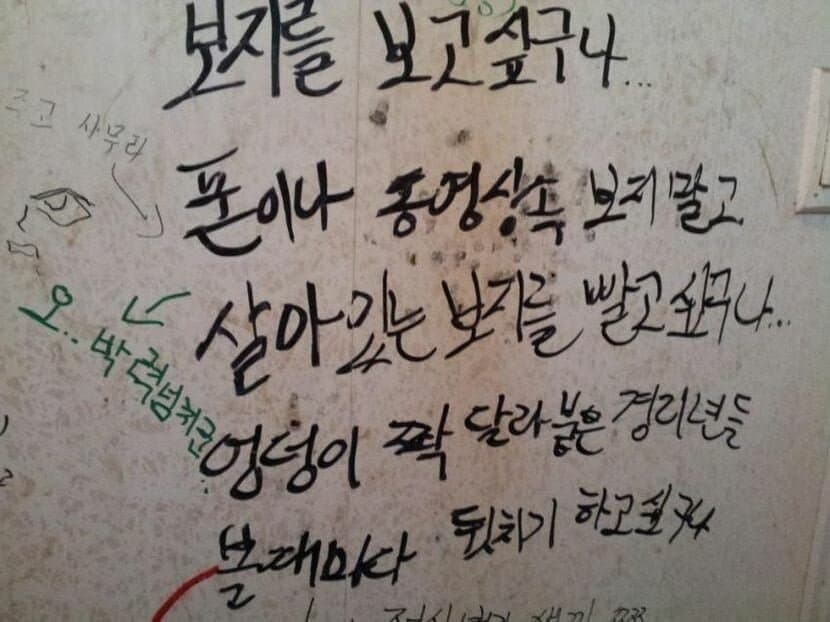 보지를 보고싶구나...
주고 사무라
폰이나 동영상속 보지말고
살아있는 보지를 빨고싶구나...
오.. 박력넘치군..
엉덩이 짝 달라붙은 경리년들
볼때마다 뒷치기 하고싶구나